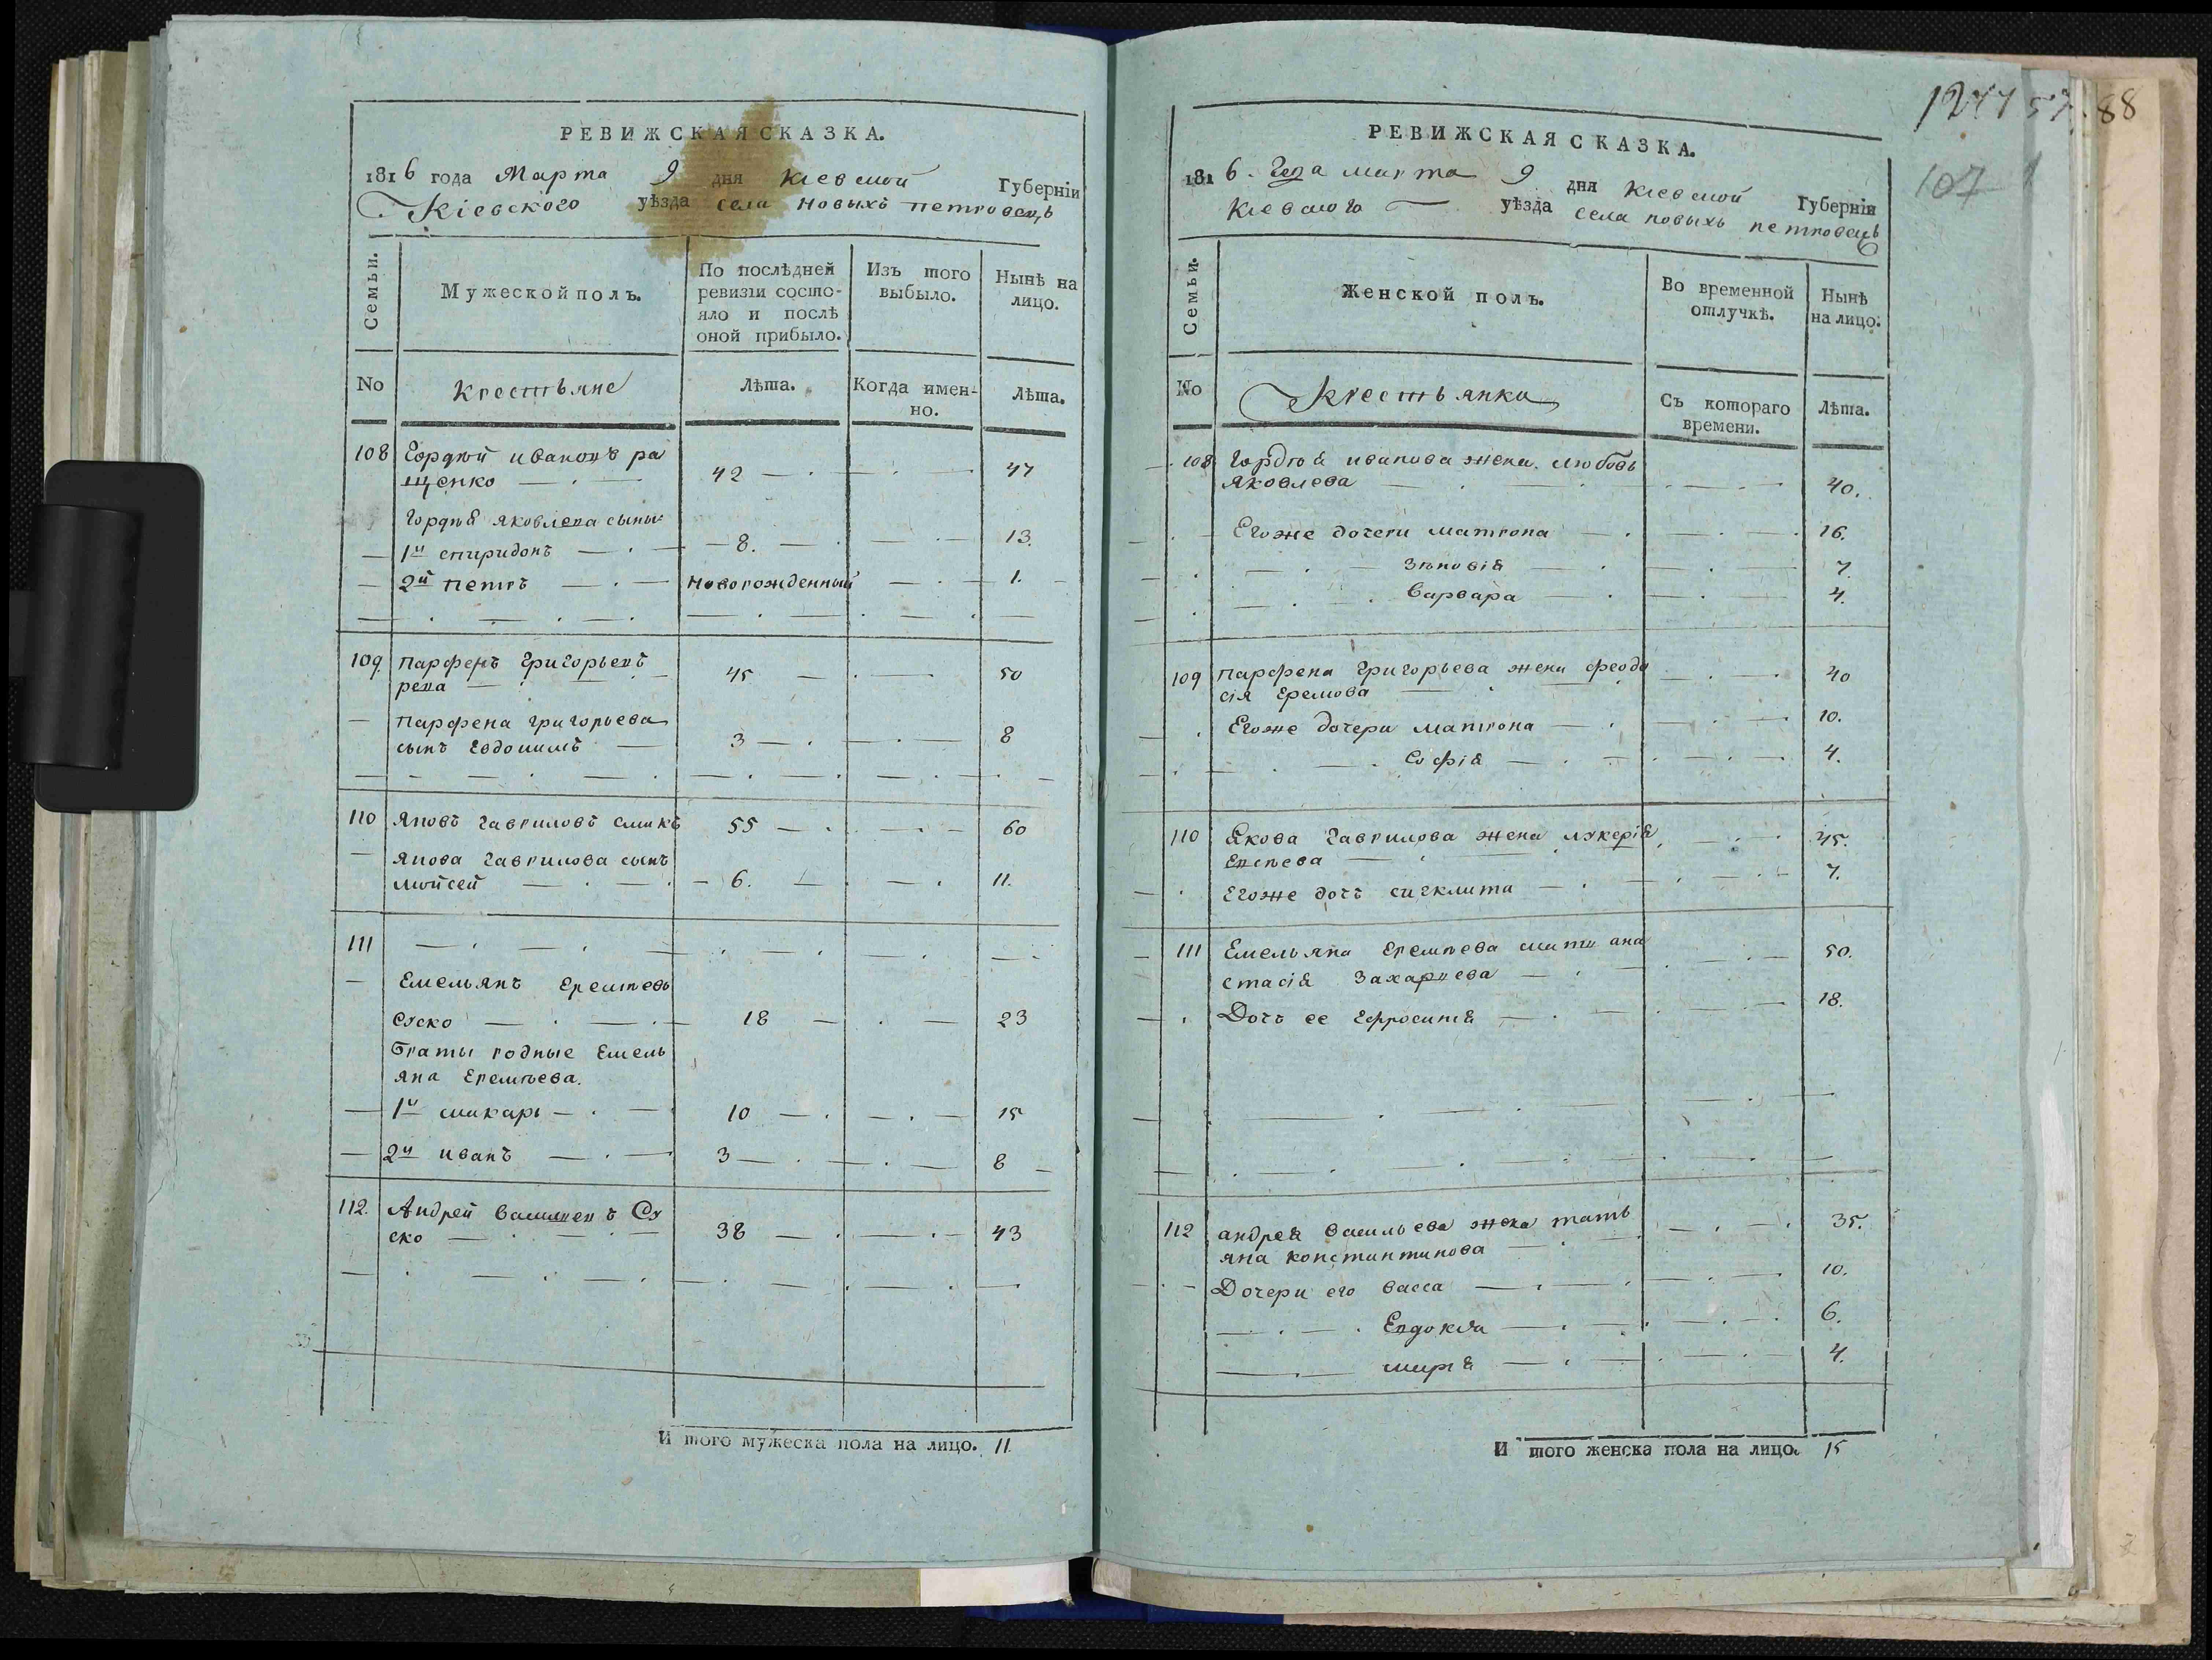 РЕВИЖСКАЯ СКАЗКА.
1816 года Марта 9 дня Кіевской Губерніи
Кіевского уѣзда села Новыхъ петровецъ
Семьи.
Мужеской полъ.
По послѣдней
ревизіи состо-
яло и послѣ
оной прибыло.
Изъ того
выбыло.
Нынѣ на
лицо.
No
Крестьяне
Лѣта.
Когда имен-
но.
Лѣта.
108 Гордѣй ивановъ ра
щенко 42 47
Гордѣя яковлева сыны
1й спиридонъ 8. 13.
2й петръ Новорожденный 1.
109. парфенъ Григорьевъ
репа 45 50
парфена григорьева
сынъ Евдокимъ 3 8
110 Яковъ гавриловъ смикъ 55 60
якова гаврилова сынъ
мойсей 6. 11.
111
Емельянъ Еремѣевъ
Суско 18 23
Браты родные Емель
яна Еремѣева.
1й макаръ 10 15
2й иванъ 3 8
112. Андрей Васильевъ Су
ско 38 43
И того мужеска пола на лицо. 11.
88
107
РЕВИЖСКАЯ СКАЗКА.
1816. Года марта 9 дня Кіевской Губерніи
Кіевского уѣзда села новыхъ петровецъ
Семьи.
Женской полъ.
Во временной
отлучкѣ.
Нынѣ
на лицо.
No
Крестьянки
Съ котораго
времени.
Лѣта.
108 Гордѣя иванова жена любовь
яковлева 40.
Егоже дочери матрона 16.
Зѣновія 7.
Варвара 4.
109 парфена Григорьева жена феодо
сія Еремова 40
Егоже дочери матрона 10.
Софія 4.
110 Якова Гаврилова жена лукерія 45.
Егоже дочь сигклита 7.
111 Емельяна Еремѣева мати ана
стасія Захариева 50.
Дочь ее Ефросинія 18.
112 андрея Васильева жена тать
яна константинова 35.
Дочери его Васса 10.
Евдокія 6.
марія 4.
И того женска пола на лицо. 15